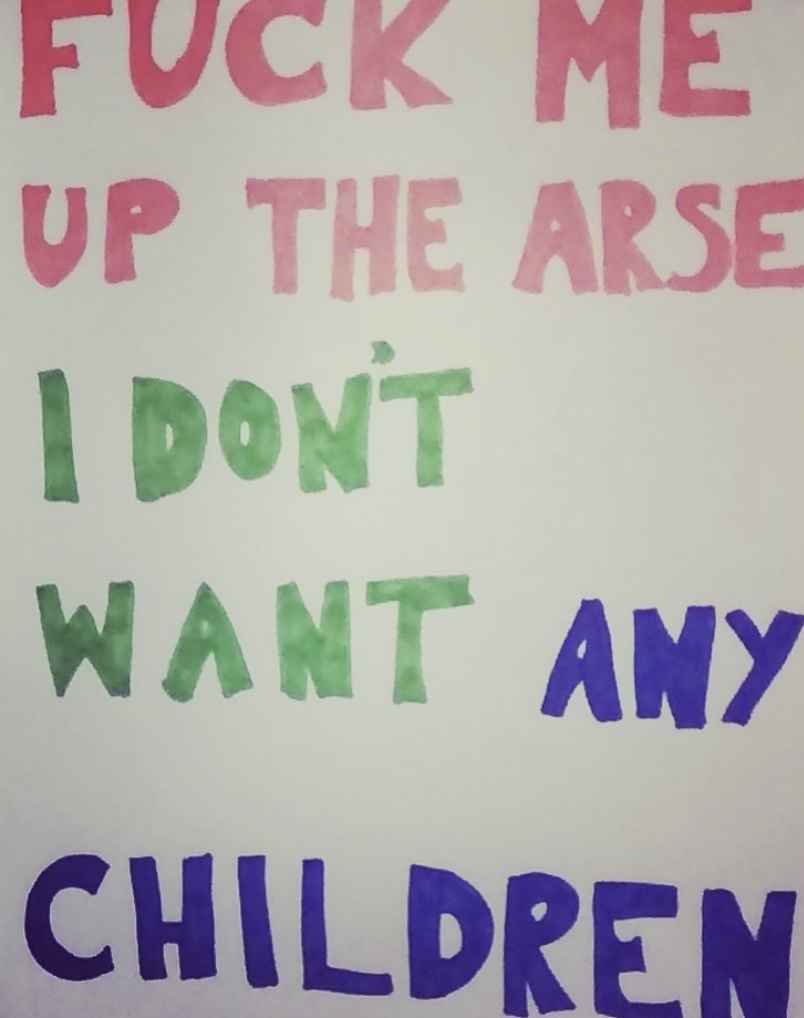 FUCK ME
UP THE ARSE
I DON'T
WANT ANY
CHILDREN